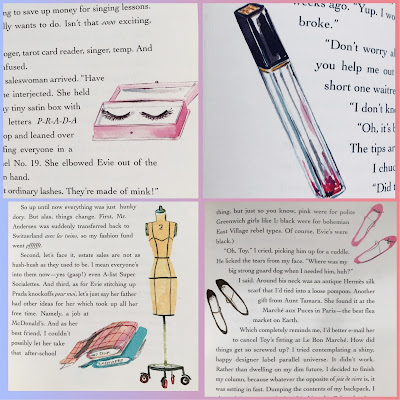 ng to save up money for singing lessons.
lly wants to do. Isn't that sooo exciting.
oger, tarot card reader, singer, temp. And
nfused.
saleswoman arrived. "Have
e interjected. She held
ny tiny satin box with
letters P-R-A-D-A
op and leaned over
fing everyone in a
el No. 19. She elbowed Evie out of the
n hand.
t ordinary lashes. They're made of mink!"
weeks ago. "Yup. I wo
broke."
"Don't worry al
you help me out
short one waitre
"I don't kno
"Oh, it's b
The tips ar
I chuc
"Did t
So up until now everything was just hunky
dory. But alas, things change. First, Mr.
Andersee was suddenly transferred back to
Switzerland avec les twins, so my fashion fund
went pffffft.
Second, let's face it, estate sales are not as
hush-hush as they used to be. I mean everyone's
into them now—yes (gasp!) even A-list Super
Socialettes. And third, as for Evie stitching up
Prada knockoffs pour moi, let's just say her father
had other ideas for her which took up all her
free time. Namely, a job at
McDonald's. And as her
best friend, I couldn't
possibly let her take
that after-school
2
thing, but just so you know, pink were for polite
Greenwich girls like I; black were for bohemian
East Village rebel types. Of course, Evie's were
black.)
"Oh, Toy," I cried, picking him up for a cuddle.
He licked the tears from my face. "Where was my
big strong guard dog when I needed him, huh?"
I said. Around his neck was an antique Hermès silk
scarf that I'd tied into a loose pompon. Another
gift from Aunt Tamara. She found it at the
Marché aux Puces in Paris—the best flea
market on Earth.
Which completely reminds me, I'd better e-mail her
to cancel Toy's fitting at Le Bon Marché. How did
things get so screwed up? I tried contemplating a shiny,
happy designer label parallel universe. It didn't work.
Rather than dwelling on my dim future, I decided to finish
my column, because whatever the opposite of joie de vivre is, it
was setting in fast. Dumping the contents of my backpack, I